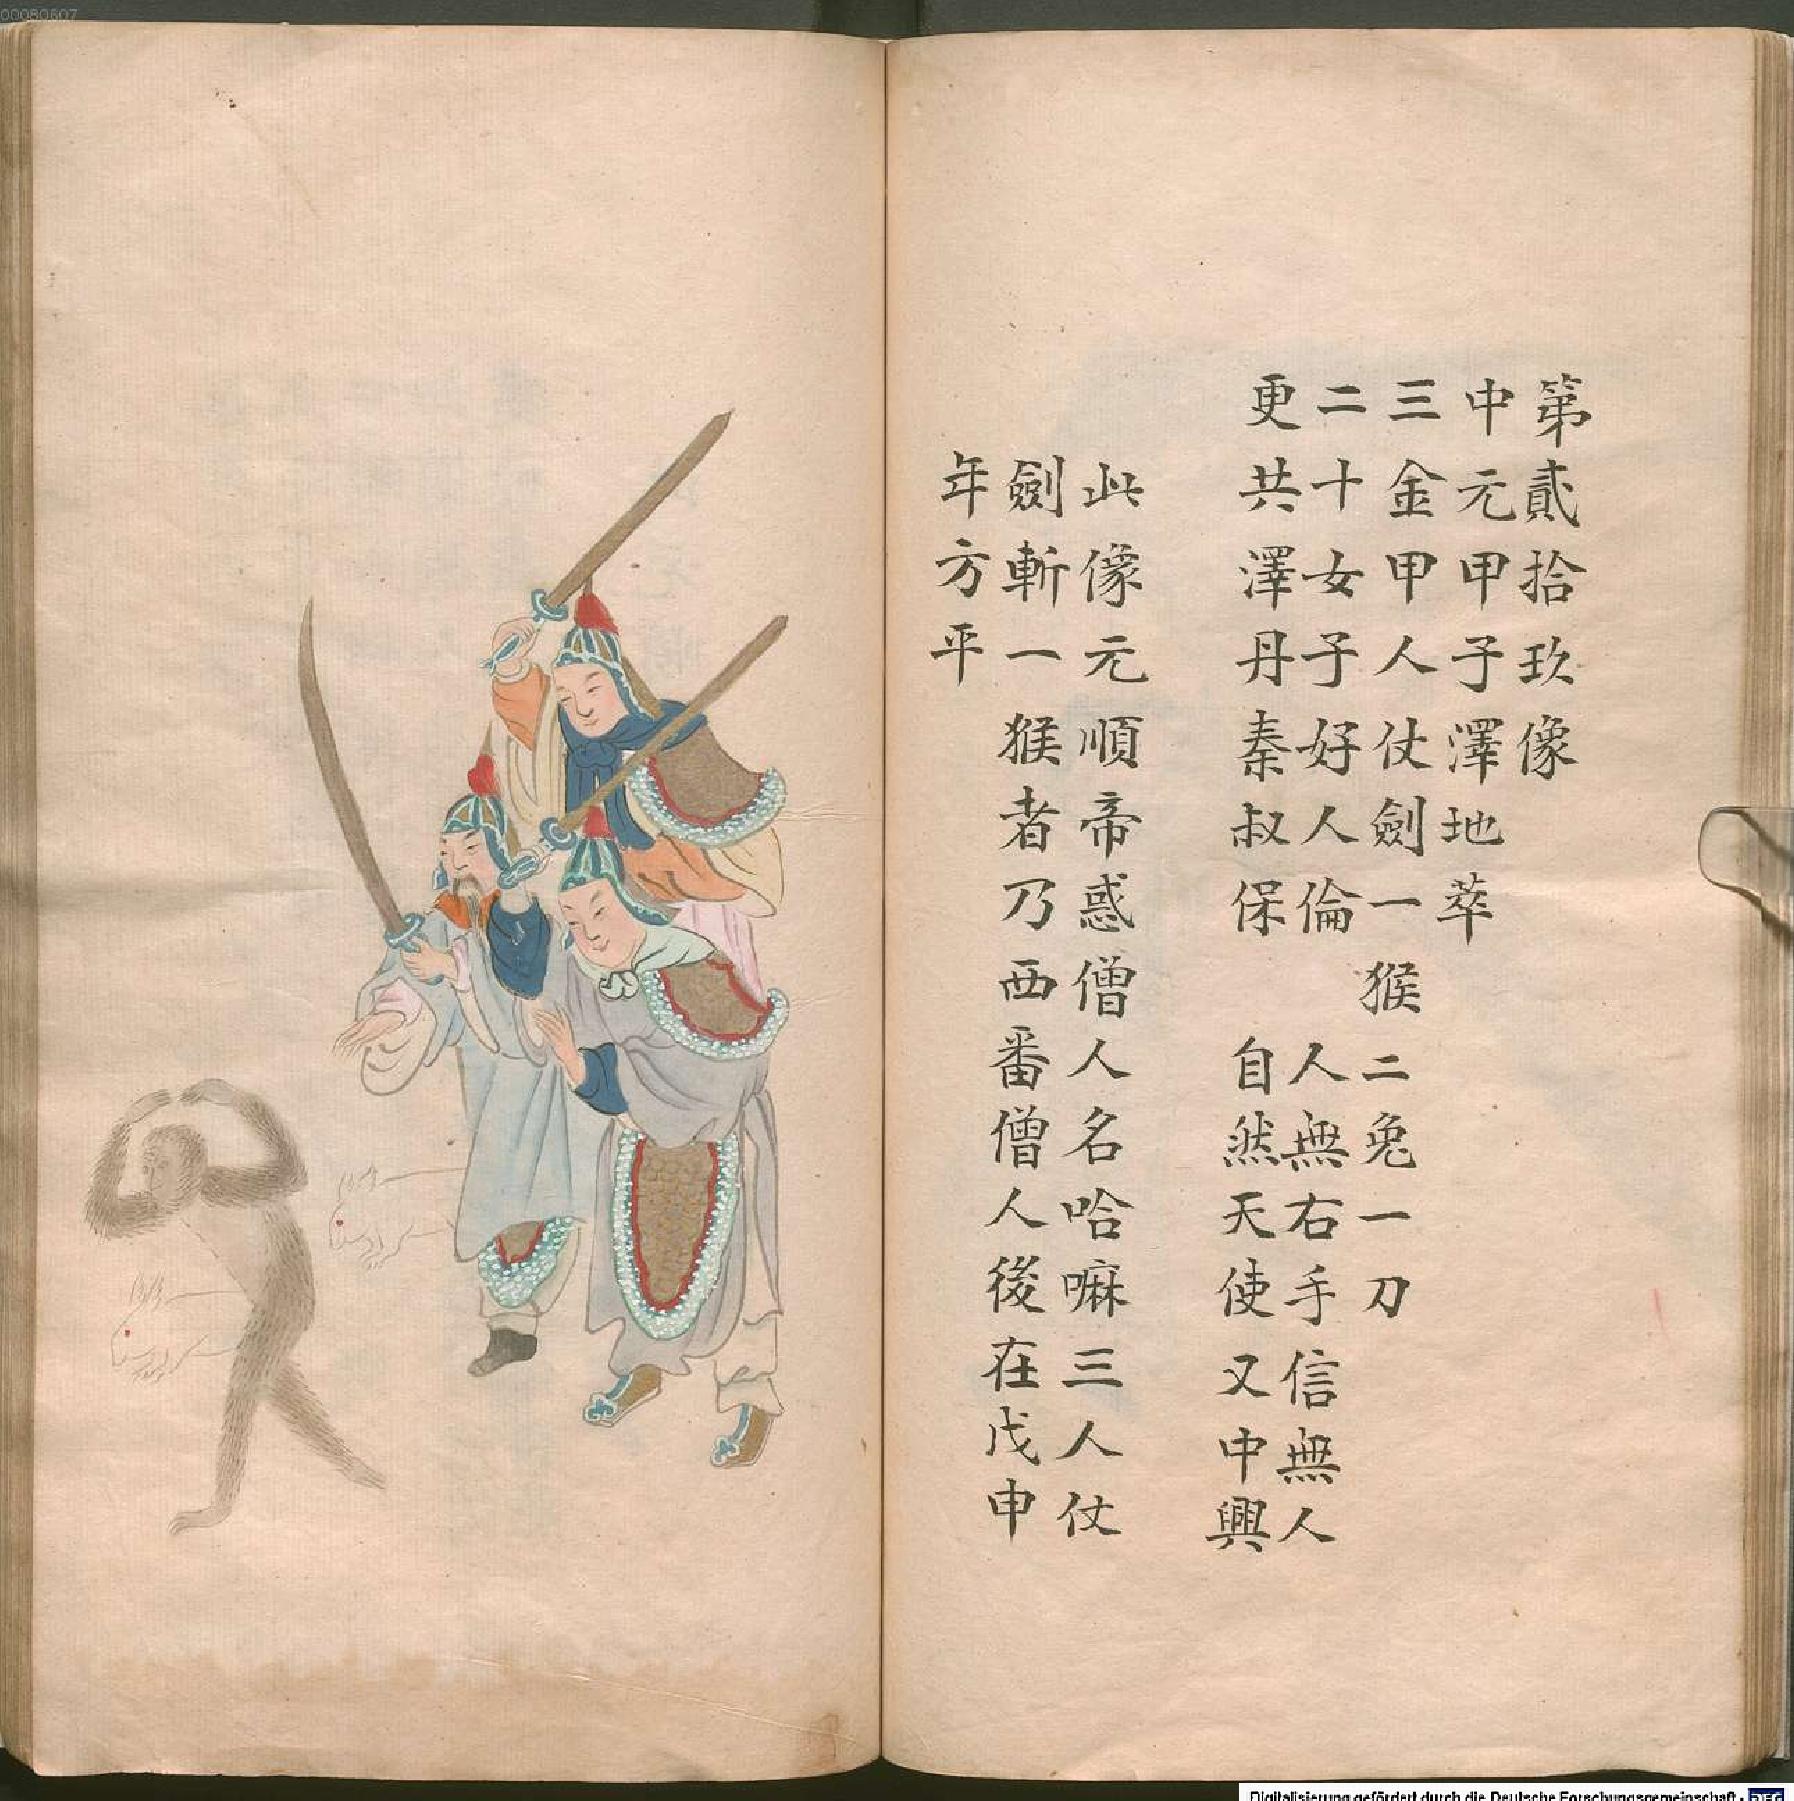 00080607
第貳拾玖像
中元甲子澤地萃
三金甲人仗劍一猴二兔一刀
二十女子好人倫 人無右手信無人
更共澤丹秦叔保 自然天使又中興
此像元順帝惑僧人名哈嘛三人仗
劍斬一猴者乃西番僧人後在戊申
年方平
Digitalisierung gefördert durch die Deutsche Forschungsgemeinschaft - DFG